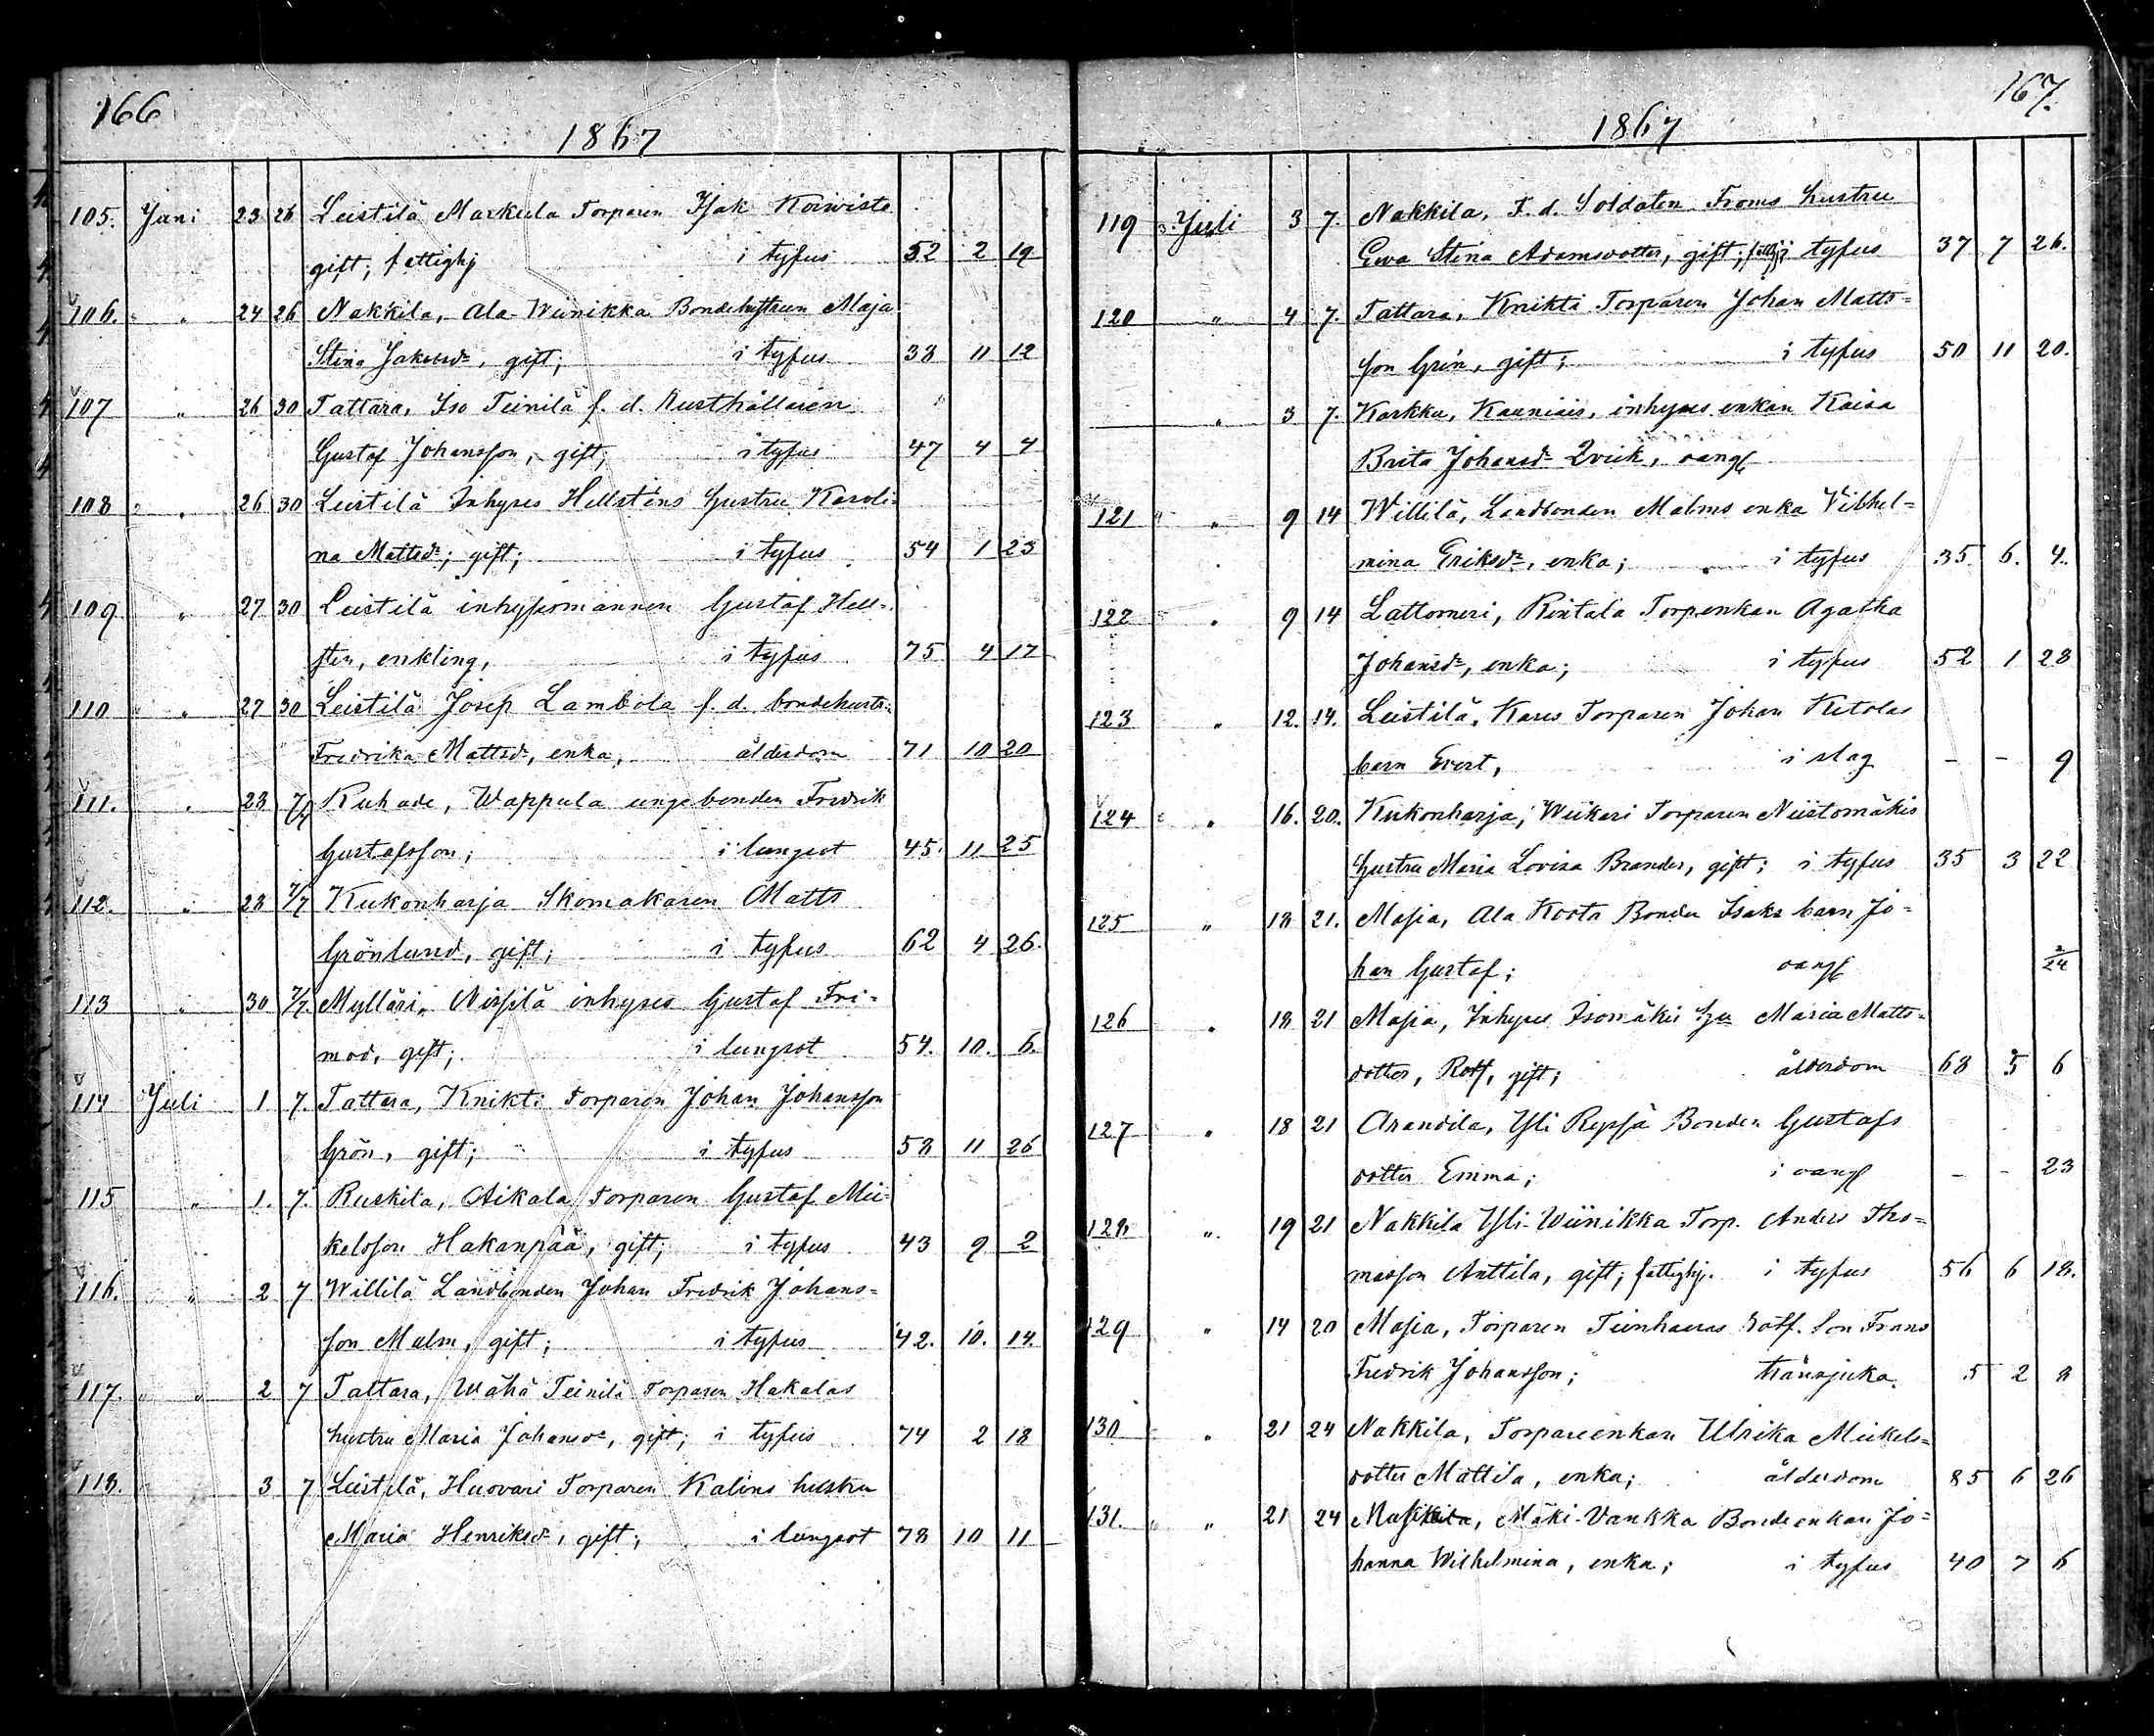 166
1867
105. Juni 23 26 Leistilä Markula Torparen Isak Koivisto
gift; fattighj i tyfus 52 2 19
106. " 24 26 Nakkila, Ala-Wiinikka Bondehustrun Maja
Stina Jakobsdr, gift; i tyfus 38 11 12
107 " 26 30 Tattara, Iso Teinilä f. d. Rusthållaren
Gustaf Johansson, gift, i tyfus 47 4 4
108 " 26 30 Leistilä Inhyses Hellsténs hustru Karoli-
na Mattsdr; gift; i tyfus 54 1 23
109 " 27 30 Leistilä inhysesmannen Gustaf Hell-
sten, enkling, i tyfus 75 4 17
110 " 27 30 Leistilä Josep Lambola f. d. bondehustr.
Fredrika Mattsdr, enka, ålderdom 71 10 20
111. " 28 7/7 Ruhade, Wappula unge bonden Fredrik
Gustafsson; i lungsot 45. 11 25
112. " 28 7/7 Kukonharja Skomakaren Matts
Grönlund, gift; i tyfus 62 4 26.
113 " 30 7/7. Mylläri, Nissilä inhyses Gustaf Fri-
mod, gift; i lungsot 54. 10. 6.
114 Juli 1 7. Tattara, Knikti Torparen Johan Johansson
Grön, gift; i tyfus 58 11 26
115 " 1. 7. Ruskila, Aikala Torparen Gustaf Mi-
kelsson Hakanpää, gift; i tyfus 43 9 2
116. " 2 7 Willilä Landbonden Johan Fredrik Johans-
son Malm, gift; i tyfus 42. 10. 14.
117. " " 2 7 Tattara, Wähä Teinilä Torparen Hakalas
hustru Maria Johansdr, gift; i tyfus 74 2 18
118. 3 7 Leistilä, Huovari Torparen Kalins hustru
Maria Henriksdr, gift; i lungsot 78 10 11
167.
1867
119 Juli 3 7. Nakkila, F. d. Soldaten Froms hustru
Ewa Stina Adamsdotter, gift; i tyfus 37 7 26.
120 " 4 7. Tattara, Knikti Torparen Johan Matts-
son Grén, gift; i tyfus 50 11 20.
" 3 7. Karkku, Kauniais, inhyses enkan Kaisa
Brita Johansdr Qvick, oangf
121 " " 9 14 Willilä, Landbonden Malms enka Vilhel-
mina Eriksdr, enka; i tyfus 35 6. 4.
122 " 9 14 Lattomeri, Rintala Torpenkan Agatha
Johansdr, enka; i tyfus 52 1 28
123 " 12. 14. Leistilä, Kares Torparen Johan Ketolas
barn Evert, i slag - - 9
124 " 16. 20. Kukonharja, Wiikari Torparen Niistomäkis
hustru Maria Lovisa Brander, gift; i tyfus 35 3 22
125 " 18 21. Masia, Ala Korta Bonden Isaks barn Jo-
han Gustaf; oangf 2/24
126 " 18 21 Masia, Inhyses Isomäkis hu Maria Matts-
dotter, gift; ålderdom 68 5 6
127 " 18 21 Arandila, Yli Repsä Bonden Gustafs
dotter Emma; i oangf - - 23
128 " 19 21 Nakkila Yli-Wiinikka Torp. Anders Tho-
masson Anttila, gift; fattighj. i tyfus 56 6 18.
129 " 14 20 Masia, Torparen Tiinhaaras son Frans
Fredrik Johansson; tränsjuka 5 2 8
130 " 21 24 Nakkila, Torpareenkan Ulrika Mickels-
dotter Mattila, enka; ålderdom 85 6 26
131. " " 21 24 Mäki-Vankka Bondeenkan Jo-
hanna Wilhelmina, enka; i tyfus 40 7 6